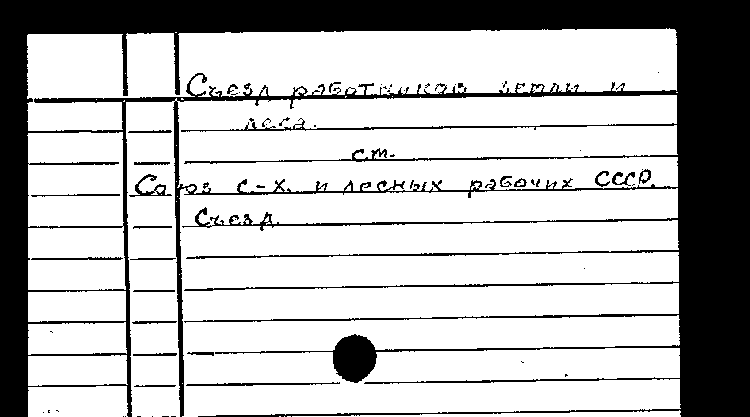 Съезд работников земли и
леса.
ст.
Союз с-х. и лесных рабочих СССР.
Съезд.